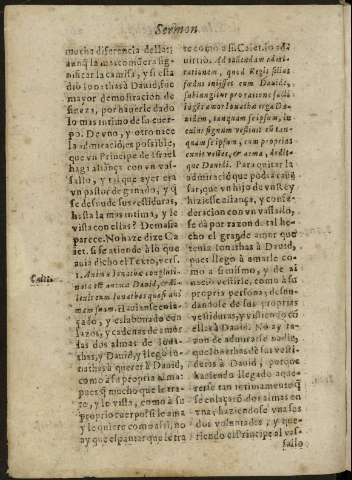 Sermon
mucha diferencia dellas;
aunq̃ la mas comũ era sig-
nificar la camisa, y si esta
dio Ionathas à Dauid, fue
mayor demostracion de
fineza, por hauerle dado
lo mas intimo de su cuer-
po. De vno, y otro nace
la admiraciõ, es possible,
que vn Principe de Israel
haga aliança con vn vas-
sallo, y tal que ayer era
vn pastor de ganado, y q̃
se desnude sus vestiduras,
hasta la mas intima, y le
vista con ellas? Demasia
parece. No haze dize Ca-
iet. si se atiende à lo que
auia dicho el Texto, vers.
1. Anima Ionathæ conglutin-
nata est animæ Dauid, & di-
lexit eum Ionathas quasi ani-
mam suam.
Caiet.
lazos, y cadenas de amor
las dos almas de Iona-
thas, y Dauid, y llegò Io-
nathas à querer à Dauid,
como à su propria alma:
pues q̃ mucho que le tra-
te, y le vista, como à su
proprio cuerpo si le ama
y le quiere como assi, no
ay que espantar que le tra
te como à si. Caiet. lo ad-
uirtiò. Ad tollendam admi-
rationem, quod Regis filius
fœdus inijsset cum Dauide,
subiungitur pro ratione
amor Ionathæ erga Da-
uidem, tanquam seipsum, in
cuius signum vestiuit eũ tan-
quam seipsum, cum proprias
exuit vestes, & arma, dedit-
que Dauidi. Para quitar la
admiraciõ que podrà cau-
sar, que vn hijo de vn Rey
hiziesse aliança, y confe-
deracion con vn vassallo,
se dà por razon de tal he-
cho el grande amor que
tenia Ionathas à Dauid,
pues llegò à amarle co-
mo à si mismo, y de ai
naciò vestirle, como à su
propria persona; desnu-
dandose de sus proprias
vestiduras, y vistiendo cõ
ellas à Dauid. No ay ra-
zon de admirarse nadie,
que Ionathas dè sus vesti-
duras à Dauid, porque
hauiendo llegado à que-
rerse tan intimamente q̃
se enlaçarõ dos almas en
vna, haziendose vna sus
dos voluntades, y que-
riendo el Principe al vas-
sallo